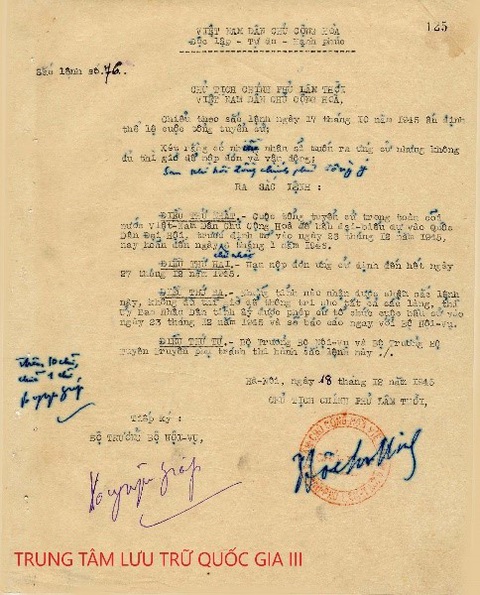 125
VIỆT NAM DÂN CHỦ CỘNG HOÀ
Độc lập - Tự do - Hạnh phúc
Sắc lệnh số 76.
CHỦ TỊCH CHÍNH PHỦ LÂM THỜI
VIỆT NAM DÂN CHỦ CỘNG HOÀ,
Chiểu theo sắc lệnh ngày 17 tháng 10 năm 1945 ấn định
thể lệ cuộc tổng tuyển cử;
Xét rằng có nhân sĩ muốn ra ứng cử nhưng không
đủ thì giờ để nộp đơn và vận động;
Sau khi hội đồng chính phủ đồng ý
RA SẮC LỆNH :
ĐIỀU THỨ NHẤT.- Cuộc tổng tuyển cử trong toàn cõi
nước Việt-Nam Dân Chủ Cộng Hoà để bầu đại-biểu dự vào Quốc
Dân Đại Hội, trước định cử vào ngày 23 tháng 12 năm 1945,
nay hoãn đến ngày 6 tháng 1 năm 1946.
chủ nhật
ĐIỀU THỨ HAI.- Hạn nộp đơn ứng cử định đến hết ngày
27 tháng 12 năm 1945.
ĐIỀU THỨ BA.- Những tỉnh nào nhận được nhận sắc lệnh
này, không đủ thì giờ để thông tri cho tất cả các làng, thì
Uỷ Ban Nhân Dân tỉnh ấy được phép cứ tổ chức cuộc bầu cử vào
ngày 23 tháng 12 năm 1945 và sẽ báo cáo ngay với Bộ Nội-Vụ.
ĐIỀU THỨ TƯ.- Bộ Trưởng Bộ Nội-Vụ và Bộ Trưởng Bộ
Tuyên Truyền phụ trách thi hành sắc lệnh này ./.
Hà-Nội, ngày 18 tháng 12 năm 1945
CHỦ TỊCH CHÍNH PHỦ LÂM THỜI,
Tiếp ký :
BỘ TRƯỞNG BỘ NỘI-VỤ,
TRUNG TÂM LƯU TRỮ QUỐC GIA III